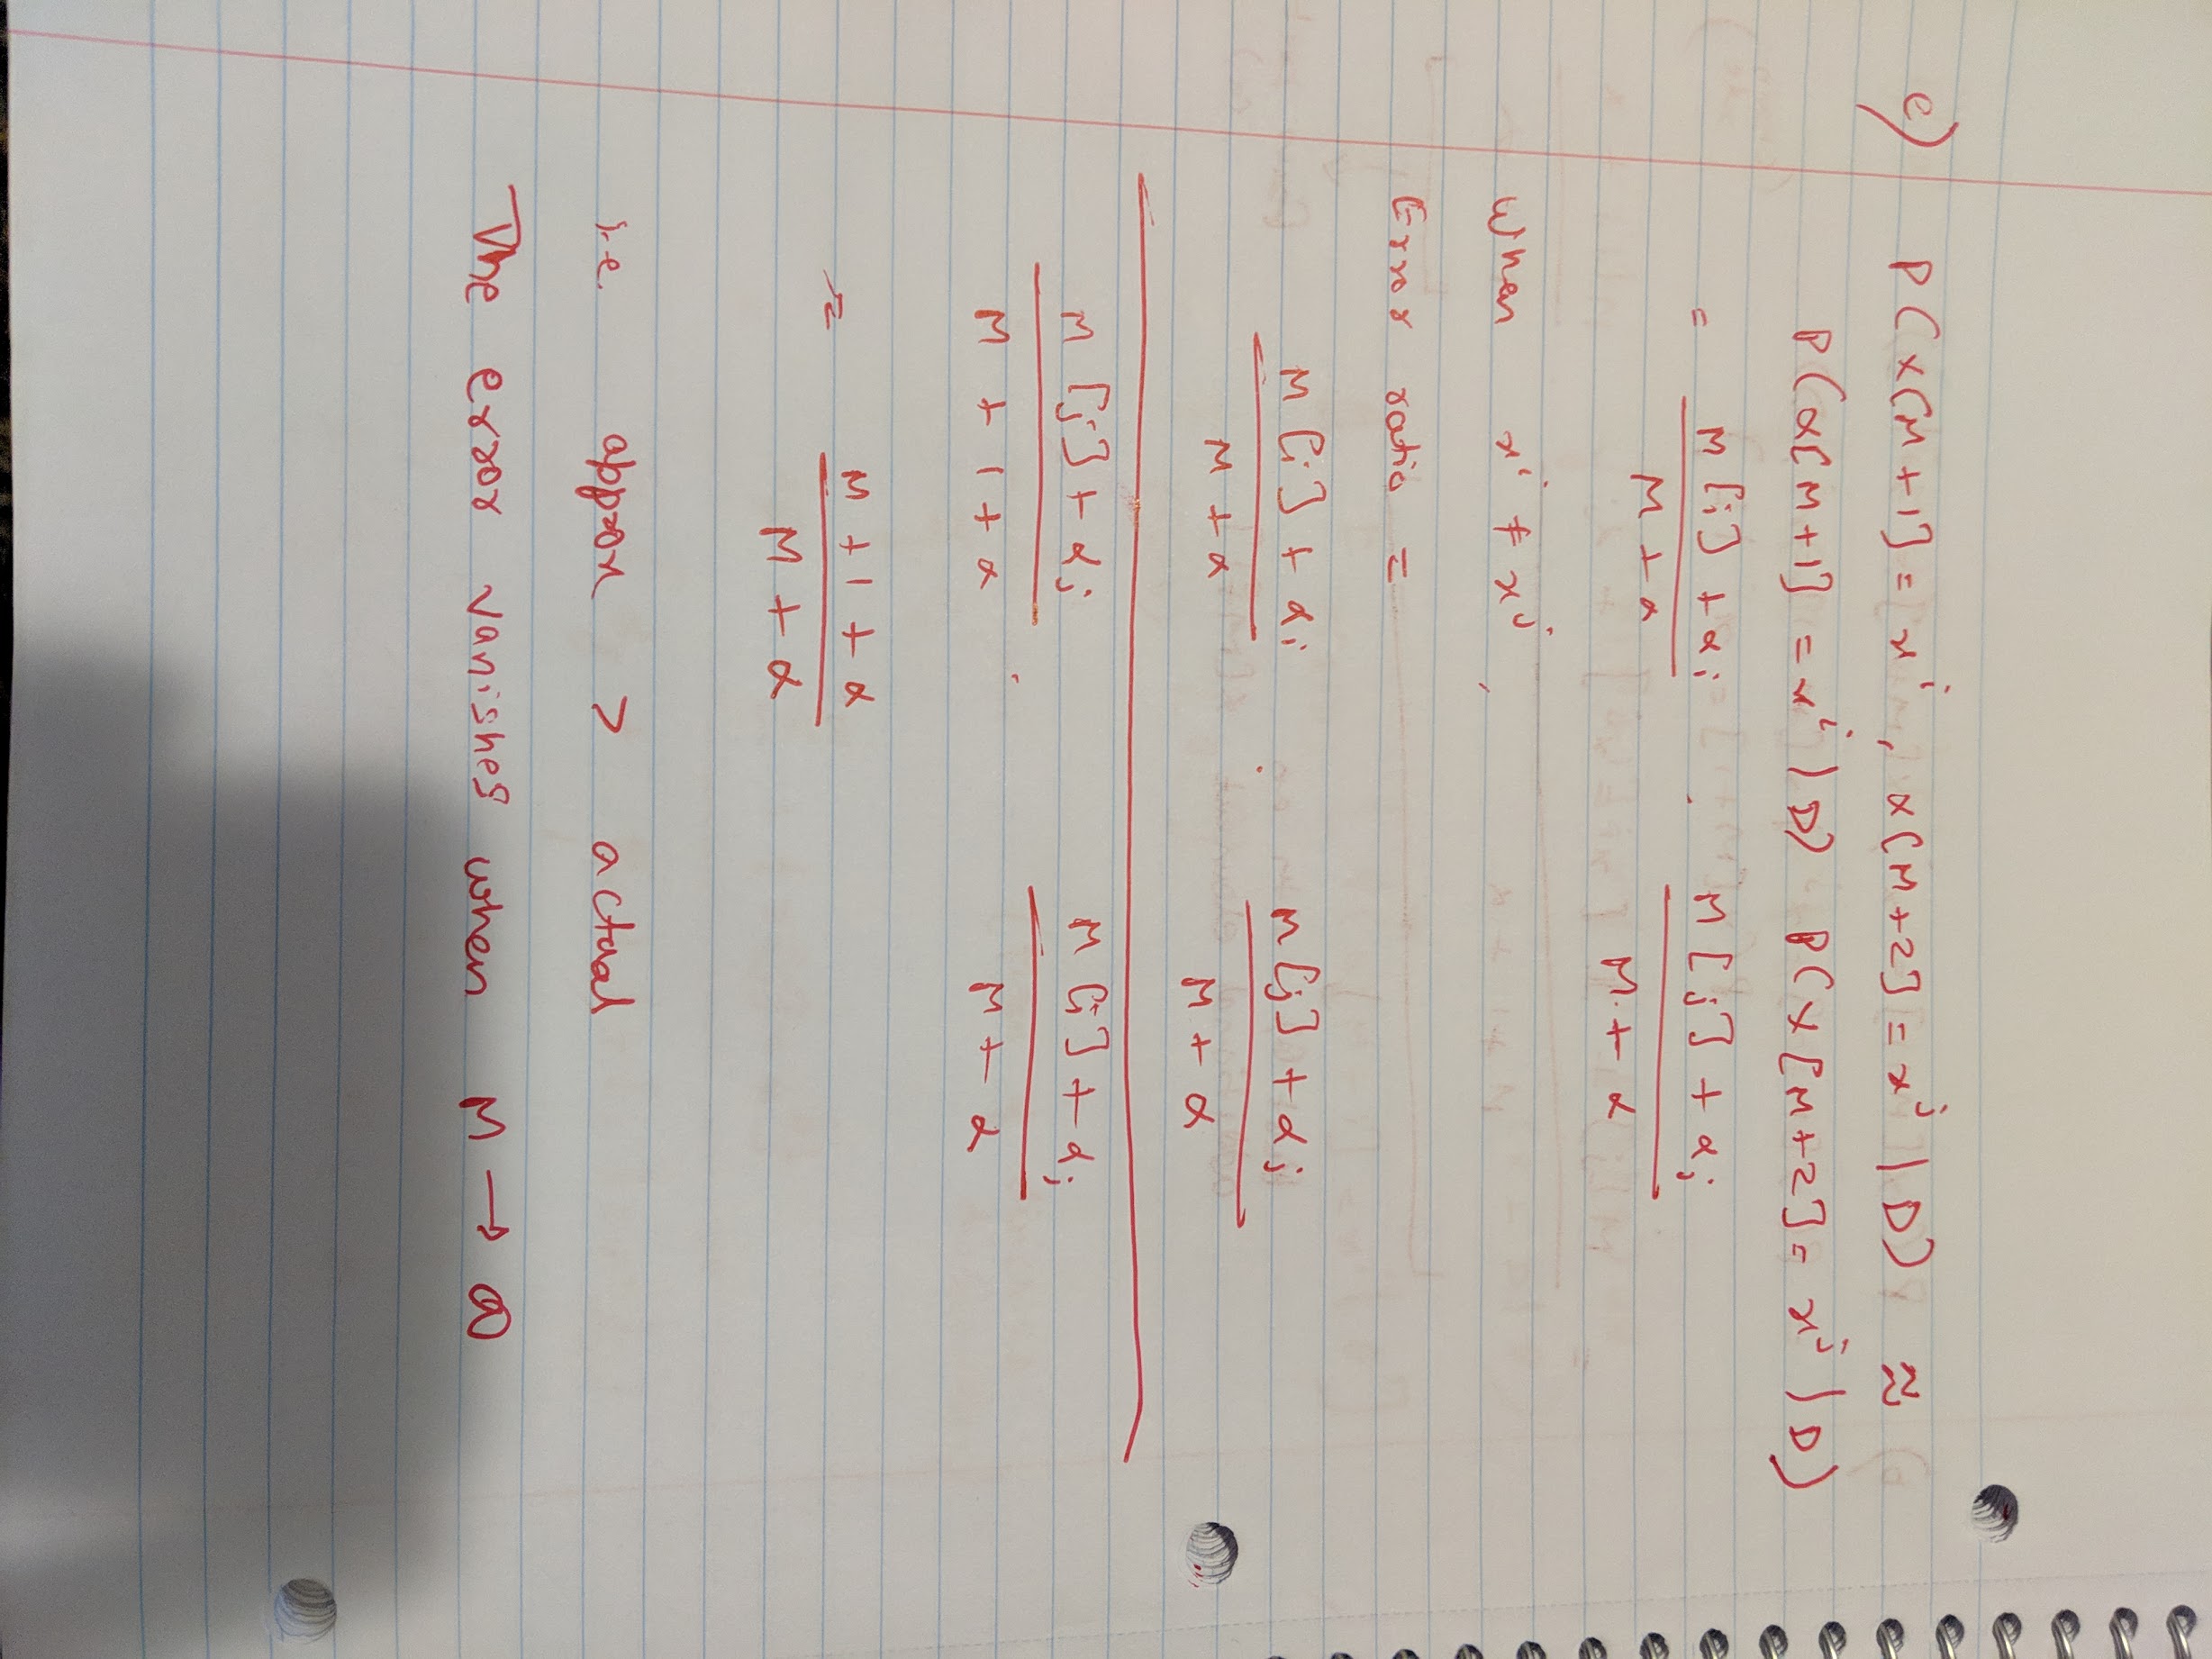 e) P(x[M+1] = x^i, x[M+2] = x^j | D) ≈
P(x[M+1] = x^i | D) P(x[M+2] = x^j | D)
= \frac{M[i] + α_i}{M + α} · \frac{M[j] + α_j}{M + α}
When x^i ≠ x^j,
Error ratio =
\frac{M[i] + α_i}{M + α} · \frac{M[j] + α_j}{M + α}
\frac{M[j] + α_j}{M + 1 + α} · \frac{M[i] + α_j}{M + α}
= \frac{M + 1 + α}{M + α}
i.e. approx > actual
The error vanishes when M → ∞